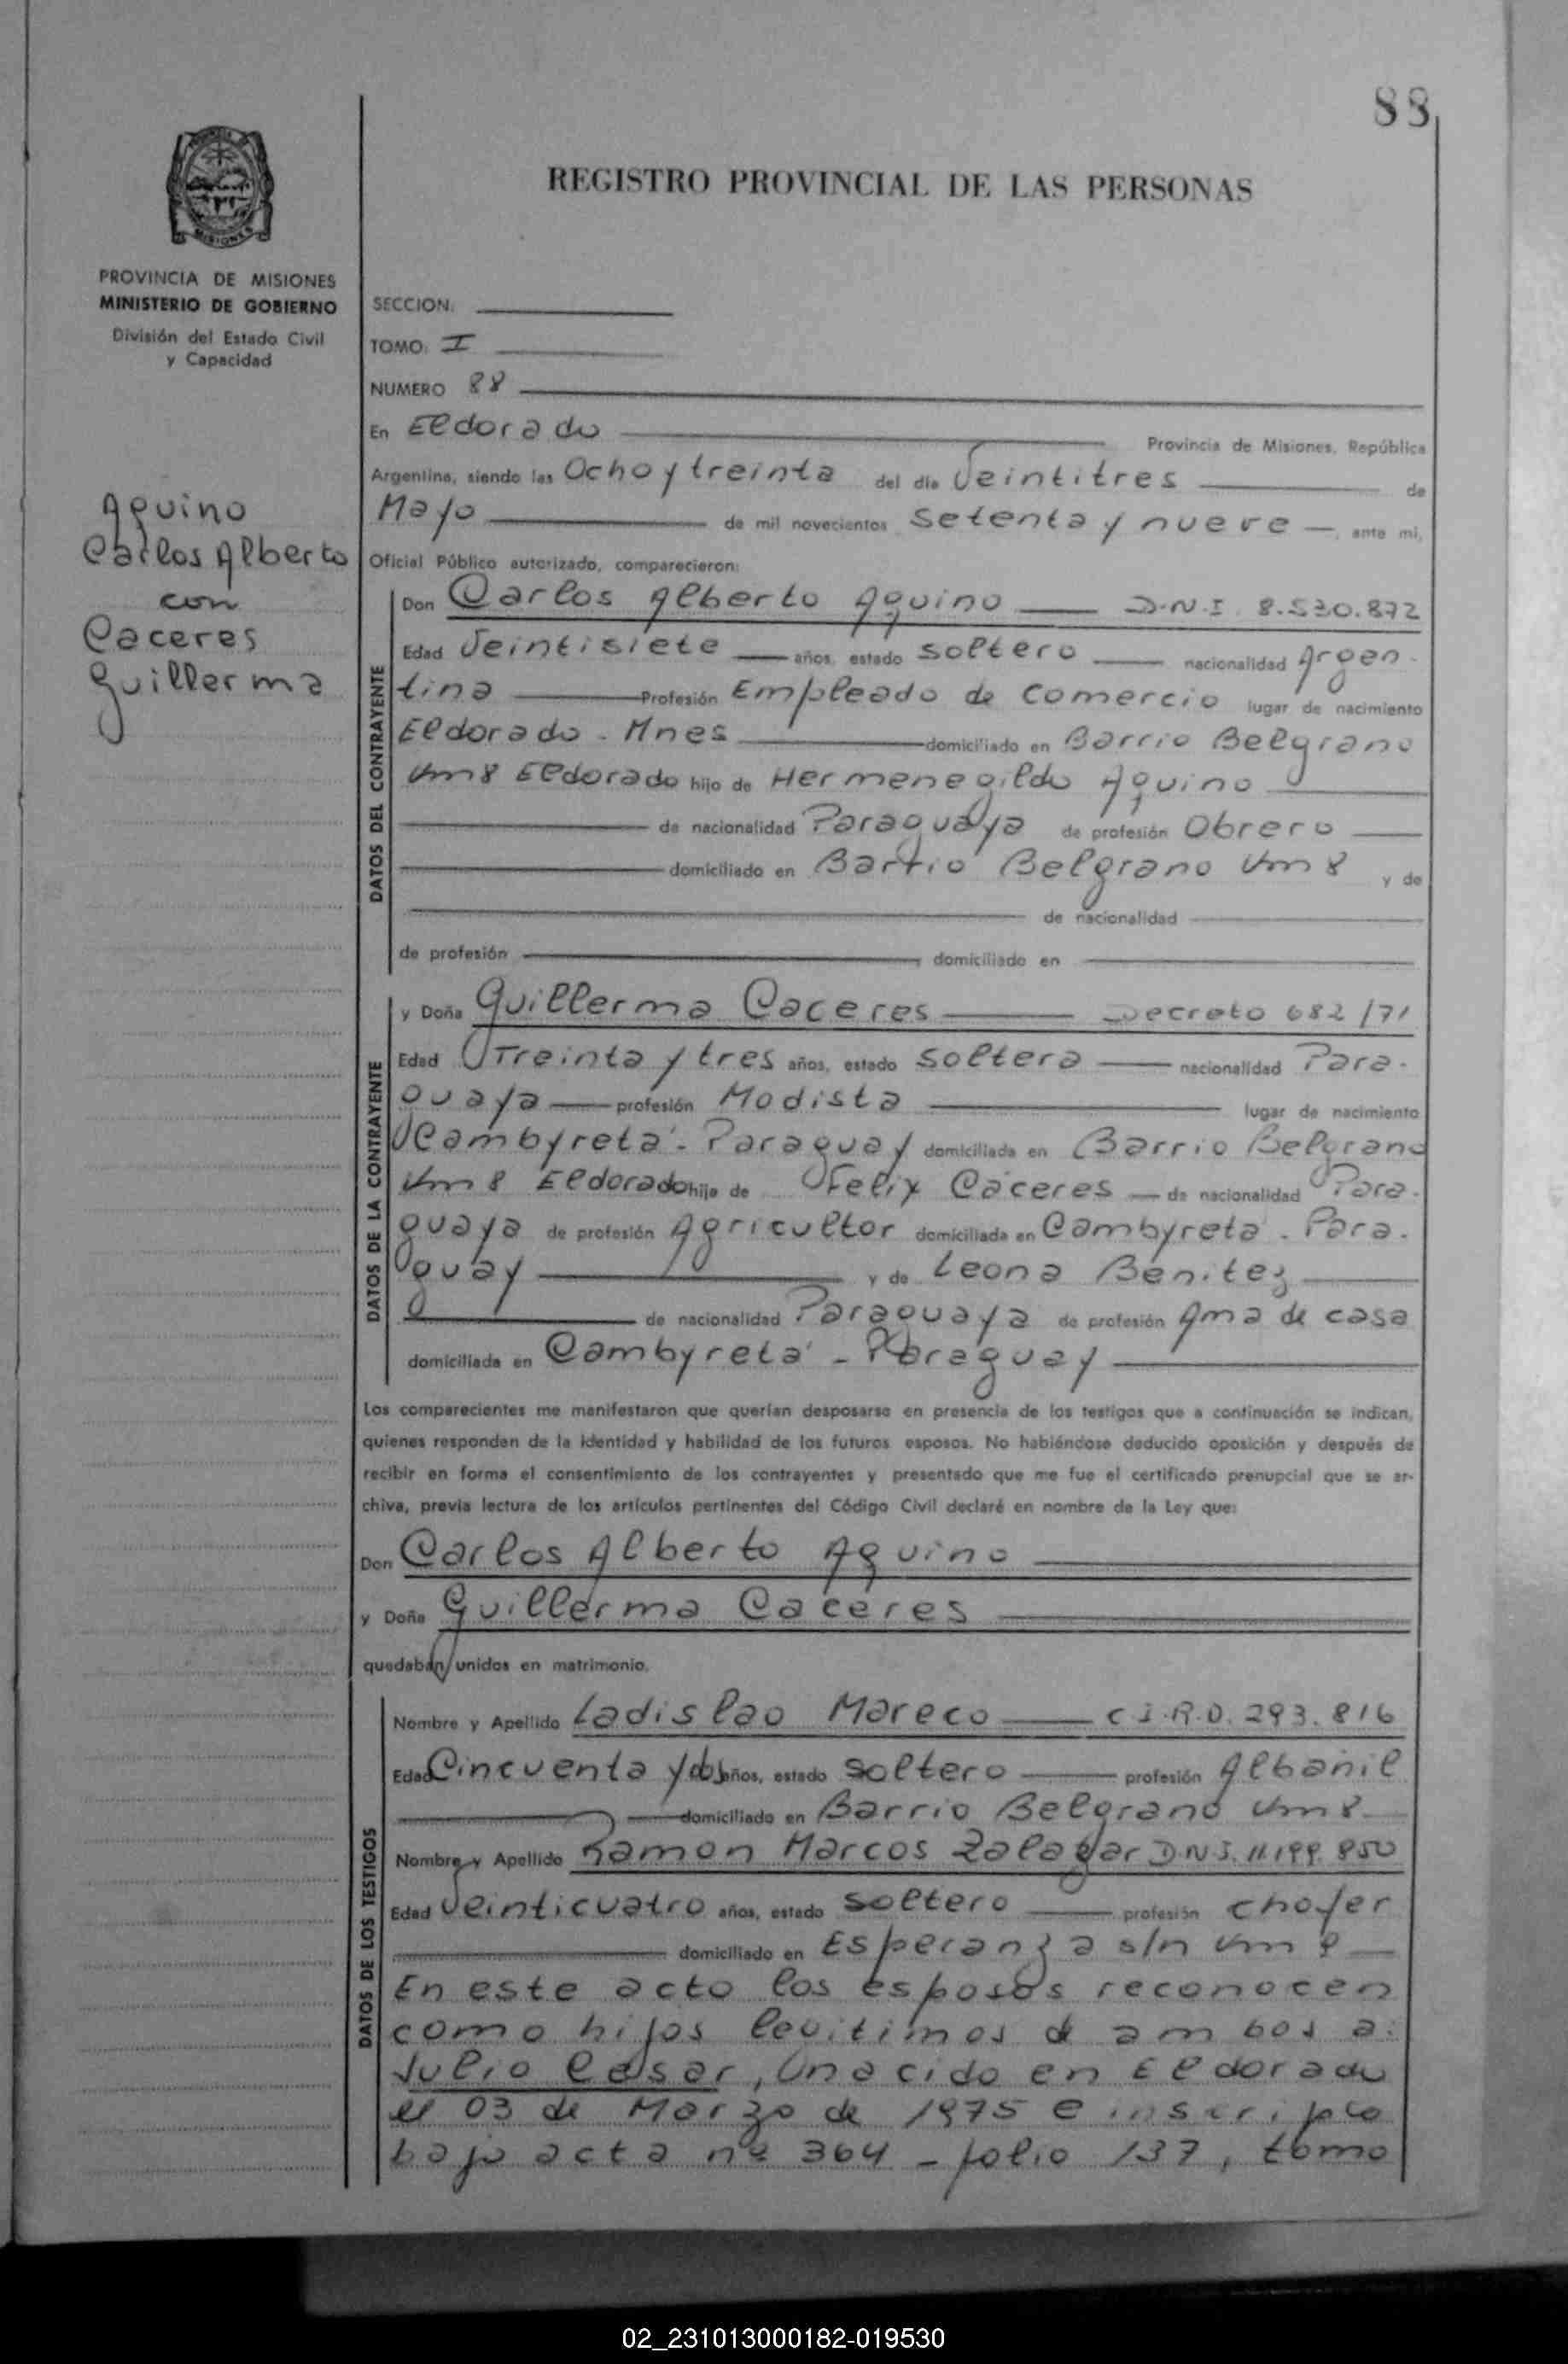 88
REGISTRO PROVINCIAL DE LAS PERSONAS
MISIONES
PROVINCIA DE MISIONES
MINISTERIO DE GOBIERNO
División del Estado Civil
y Capacidad
Aquino
Carlos Alberto
con
Caceres
Guillerma
SECCION:
TOMO: I
NUMERO 88
En Eldorado Provincia de Misiones, República
Argentina, siendo las Ocho y treinta del día Veintitres de
Mayo de mil novecientos Setenta y nueve, ante mi,
Oficial Público autorizado, comparecieron:
DATOS DEL CONTRAYENTE
Don Carlos Alberto Aquino D.N.I. 8.530.872
Edad Veintisiete años, estado soltero nacionalidad Argen-
tina Profesión Empleado de comercio lugar de nacimiento
Eldorado - Mnes domiciliado en Barrio Belgrano
Km 8 Eldorado hijo de Hermenegildo Aquino
de nacionalidad Paraguaya de profesión Obrero
domiciliado en Barrio Belgrano Km 8 y de
de nacionalidad
de profesión domiciliado en
DATOS DE LA CONTRAYENTE
y Doña Guillerma Caceres Decreto 682/71
Edad Treinta y tres años, estado soltera nacionalidad Para-
guaya profesión Modista lugar de nacimiento
Cambyretá - Paraguay domiciliada en Barrio Belgrano
Km 8 Eldorado hija de Felix Cáceres de nacionalidad Para-
guaya de profesión Agricultor domiciliada en Cambyretá - Para-
guay y de Leona Benitez
de nacionalidad Paraguaya de profesión Ama de casa
domiciliada en Cambyretá - Paraguay
Los comparecientes me manifestaron que querían desposarse en presencia de los testigos que a continuación se indican,
quienes responden de la identidad y habilidad de los futuros esposos. No habiéndose deducido oposición y después de
recibir en forma el consentimiento de los contrayentes y presentado que me fue el certificado prenupcial que se ar-
chiva, previa lectura de los artículos pertinentes del Código Civil declaré en nombre de la Ley que:
Don Carlos Alberto Aquino
y Doña Guillerma Caceres
quedaban unidos en matrimonio.
DATOS DE LOS TESTIGOS
Nombre y Apellido Ladislao Mareco C.I.R.D. 293.816
Edad Cincuenta y dos años, estado soltero profesión Albanil
domiciliado en Barrio Belgrano Km 8
Nombre y Apellido Ramon Marcos Zalazar D.N.I. 11.199.850
Edad Veinticuatro años, estado soltero profesión chofer
domiciliado en Esperanza s/n Km 8
En este acto los esposos reconocen
como hijos legitimos de ambos a:
Julio Cesar, nacido en Eldorado
el 03 de Marzo de 1975 e inscripto
bajo acta nº 364 - folio 137, tomo
02_231013000182-019530